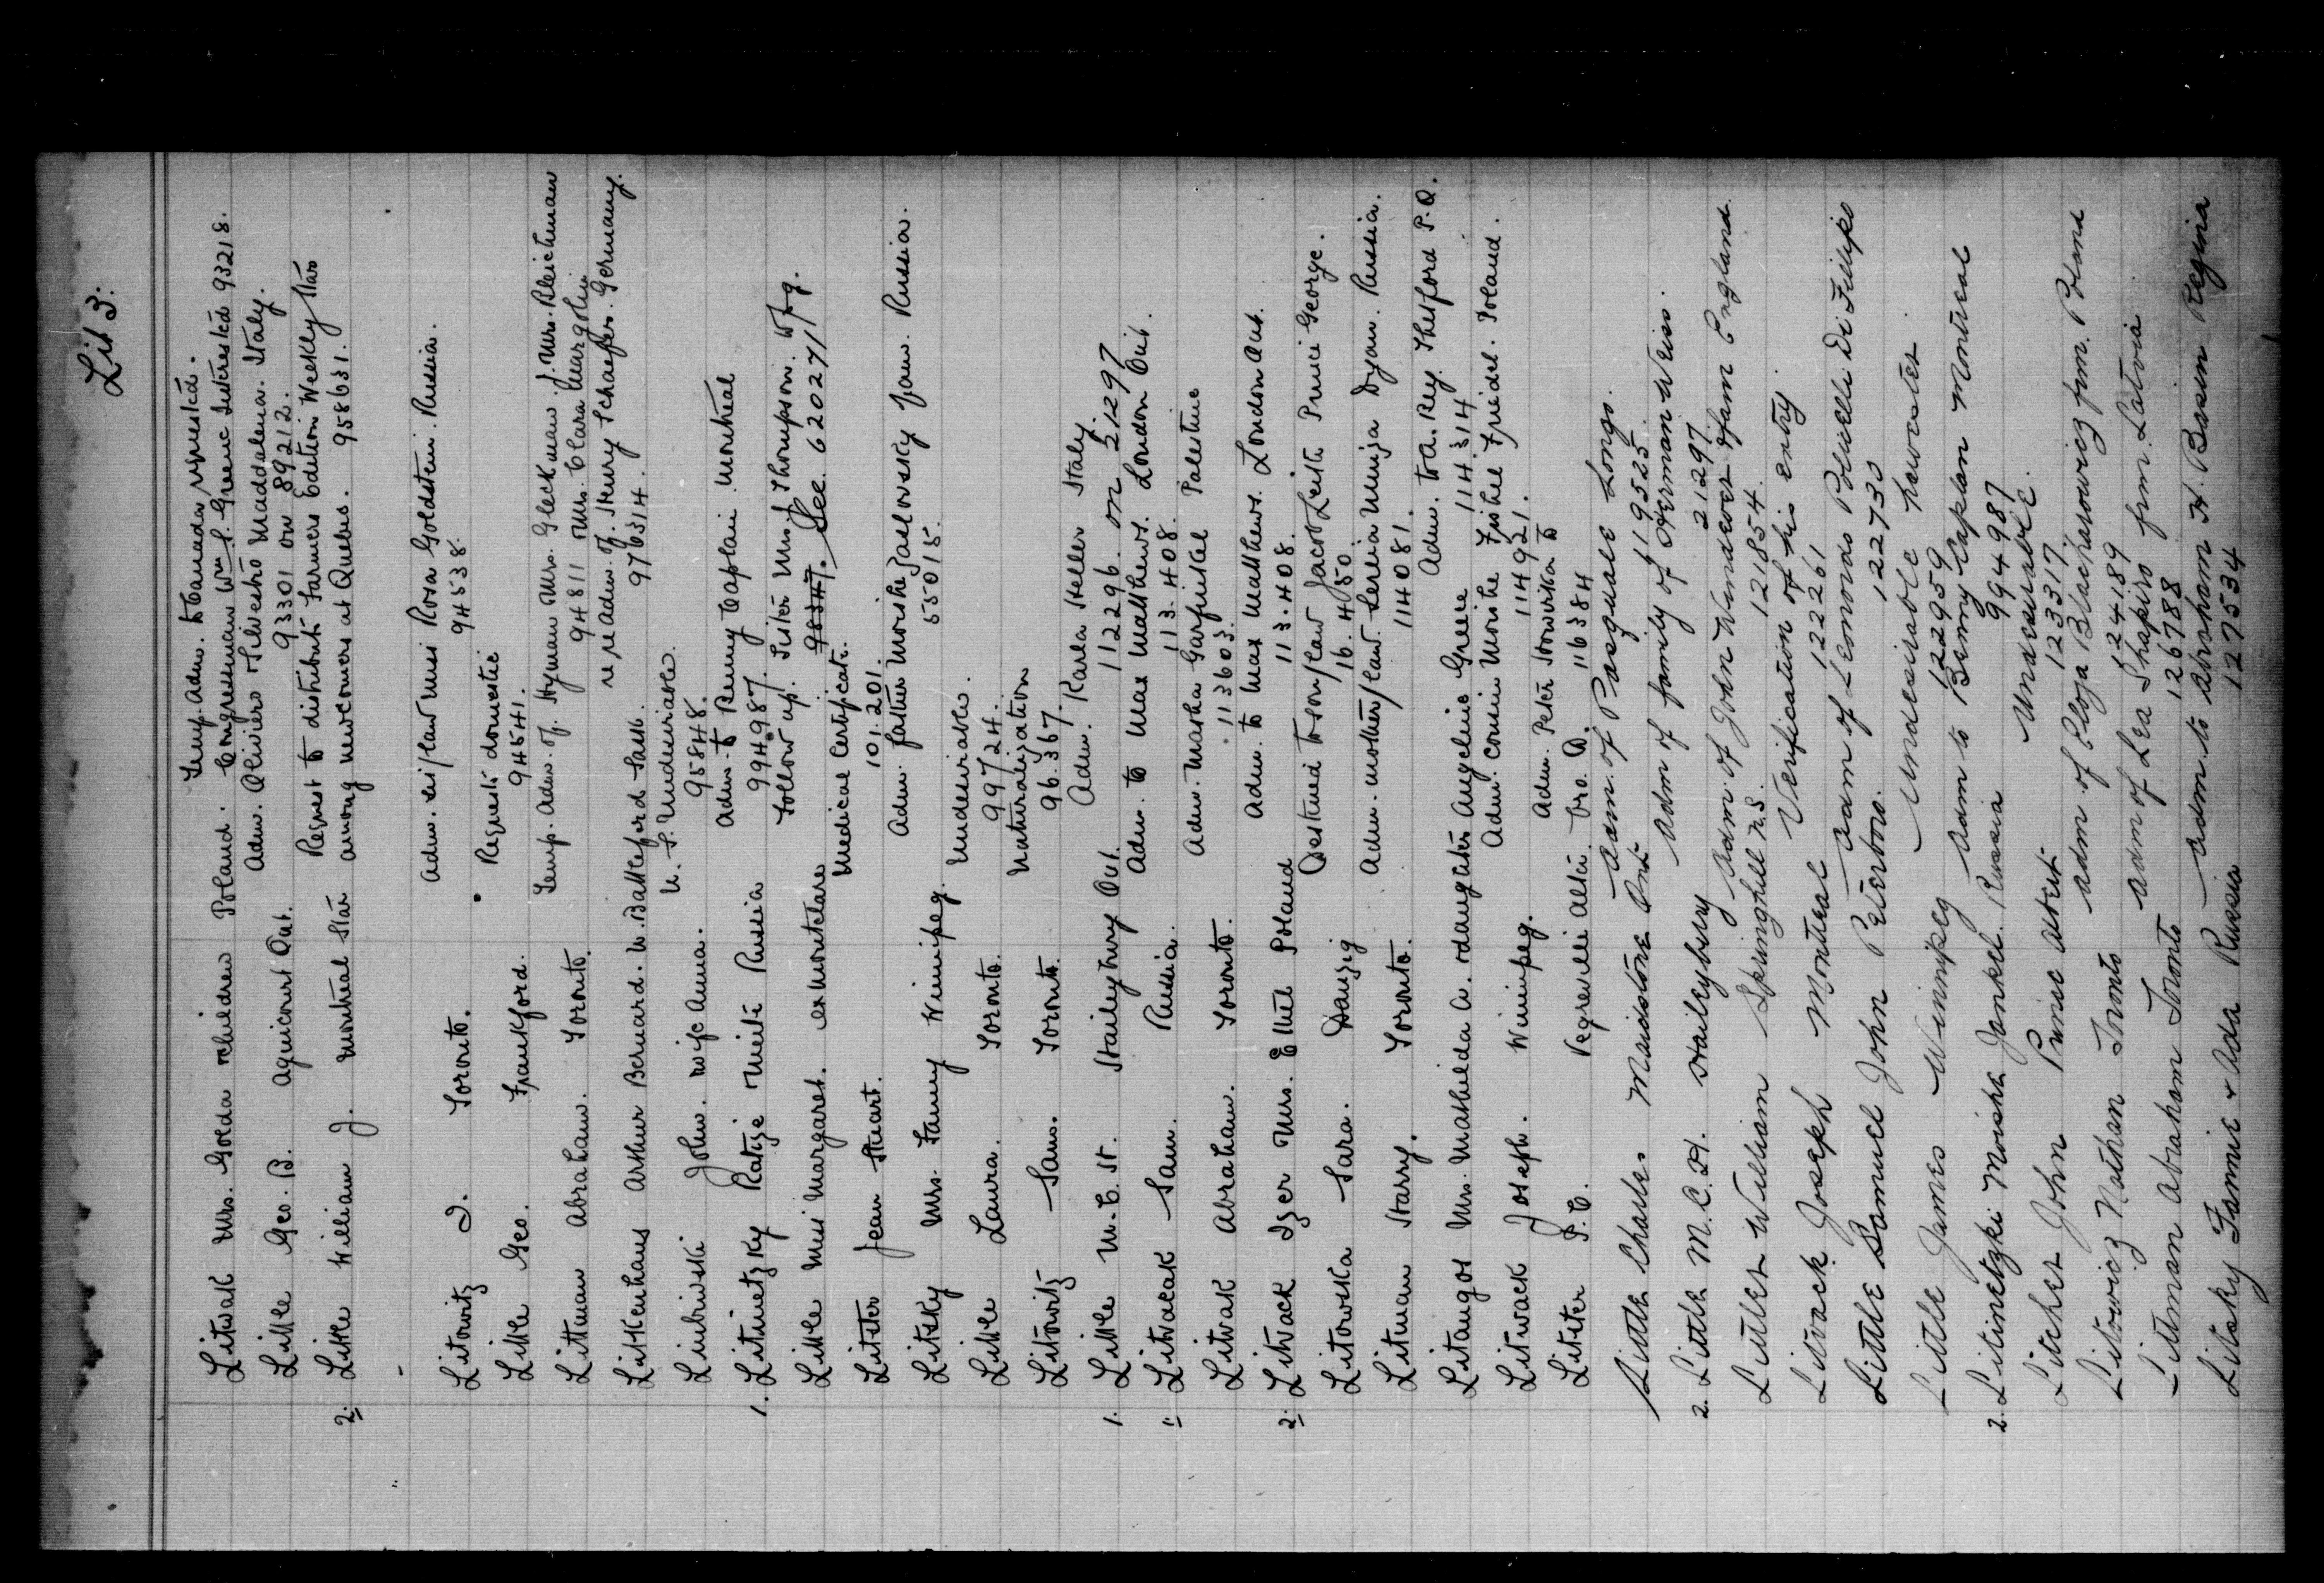 Lit 3.
Temp. Adm. to Canada requested.
Litwak Mrs. Golda & children Poland. Congressman Wm S. Greene Interested 93218.
Little Geo. B. Agincourt Ont. Adm. Oliviero & Silvestro Maddalena. Italy.
93301 on 89212.
2. Little William J. Montreal Star Request to distribute Farmers Edition Weekly Star
among newcomers at Quebec. 958631.
Litowitz I. Toronto. Adm. sis/law Miss Rosa Goldstein. Russia.
94538.
Little Geo. Frankford. Requests domestic
94541.
Littman Abraham. Toronto. Temp. Adm. of. Hyman Mrs. Gleckman. J. Mrs. Bleichman
94811 & Mrs. Clara Margolin
Litkenhaus Arthur Bernard. W. Battleford Sask. re Adm. of. Henry Schaefer. Germany.
976314.
John. wife Anna. U. S. Undesirable.
95848.
1. Litinetzky Ratize Meite Russia Adm. to Benny Caplan Montreal
994987.
Little Miss Margaret. ex Montclare Follow up. Sister Mrs. J. Thompson. Wpg.
98347. See 620271
Litster Jean Stuart. Medical Certificate.
101.201.
Litsky Mrs. Fanny Winnipeg. Adm. father Moishe Jaslowsky Jam. Russia.
55015.
Little Laura. Toronto. Undesirable.
99724.
Litowitz Sam. Toronto. Naturalization
96.367.
1. Little W. C. St. Ont. Adm. Karla Keller Italy.
11296 on 21297
1. Litwacak Sam. Russia. Adm. to Max Matthews. London Ont.
113.408.
Litwak Abraham. Toronto. Adm. Masha Garfinkel Palestine
113603.
2. Litvack Izer Mrs. Ethel Poland Adm. to Max Matthews. London Ont.
113.408.
Litowska Sara. Danzig Destined to son/law Jacob Leith Prince George.
16.450
Litman Harry. Toronto. Adm. mother/law Dyan. Russia.
114081.
Litaugot Mrs. Mathilda A. & daughter Angeline Greece Adm. to A. Rey. Thetford P.Q.
114314
Litwack Joseph. Winnipeg. Adm. cousin Moishe Fishel Friedel. Poland.
114921.
Litster P. C. Vegreville Alta. Bro. D. Adm. Peter to
116384
Little Charles Maidstone Ont Adm. of Pasquale Longo.
119525.
2. Little M. C. H. Haileybury Adm of family of Herman Weiss.
21297.
Littler William Springhill N.S. Adm of John Windeover & fam England.
121854.
Litvack Joseph Montreal Verification of his entry.
122261
Little Samuel John Peterboro. Adm of Leonardo Politelli Di Fillipo
122730
Little James Winnipeg Undesirable harvester.
122959
2. Litinetzki Moishe Jankel. Russia Adm to Benny Caplan Montreal
994987
Litcher John Prince Albert Undesirable.
123317.
Litowicz Nathan Toronto Adm of Ploja Blacharowicz fm. Poland
124189
Littman Abraham Toronto Adm of Lea Shapiro fm. Latvia.
126788
Litsky Fannie & Ada Russia Adm. to Abraham H. Bassin Regina
127534